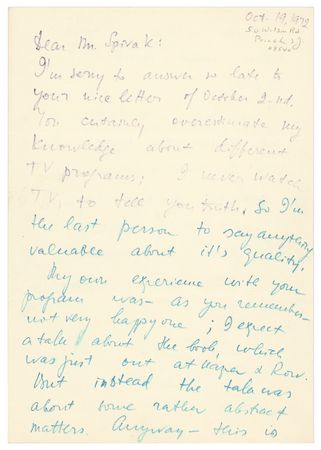 Oct. 19, 1972
50 Wilson Rd
Princ. NJ
08540
Dear Mr. Spivak:
I'm sorry to answer so late to
your nice letter of October 2-nd.
You certainly overestimate my
knowledge about different
TV programs; I never watch
TV, to tell you truth. So I'm
the last person to say anything
valuable about it's quality.
My own experience with your
program was – as you remember –
not very happy one; I expect
a talk about the book, which
was just out at Harper & Row.
But instead the talk was
about some rather abstract
matters. Anyway – this is